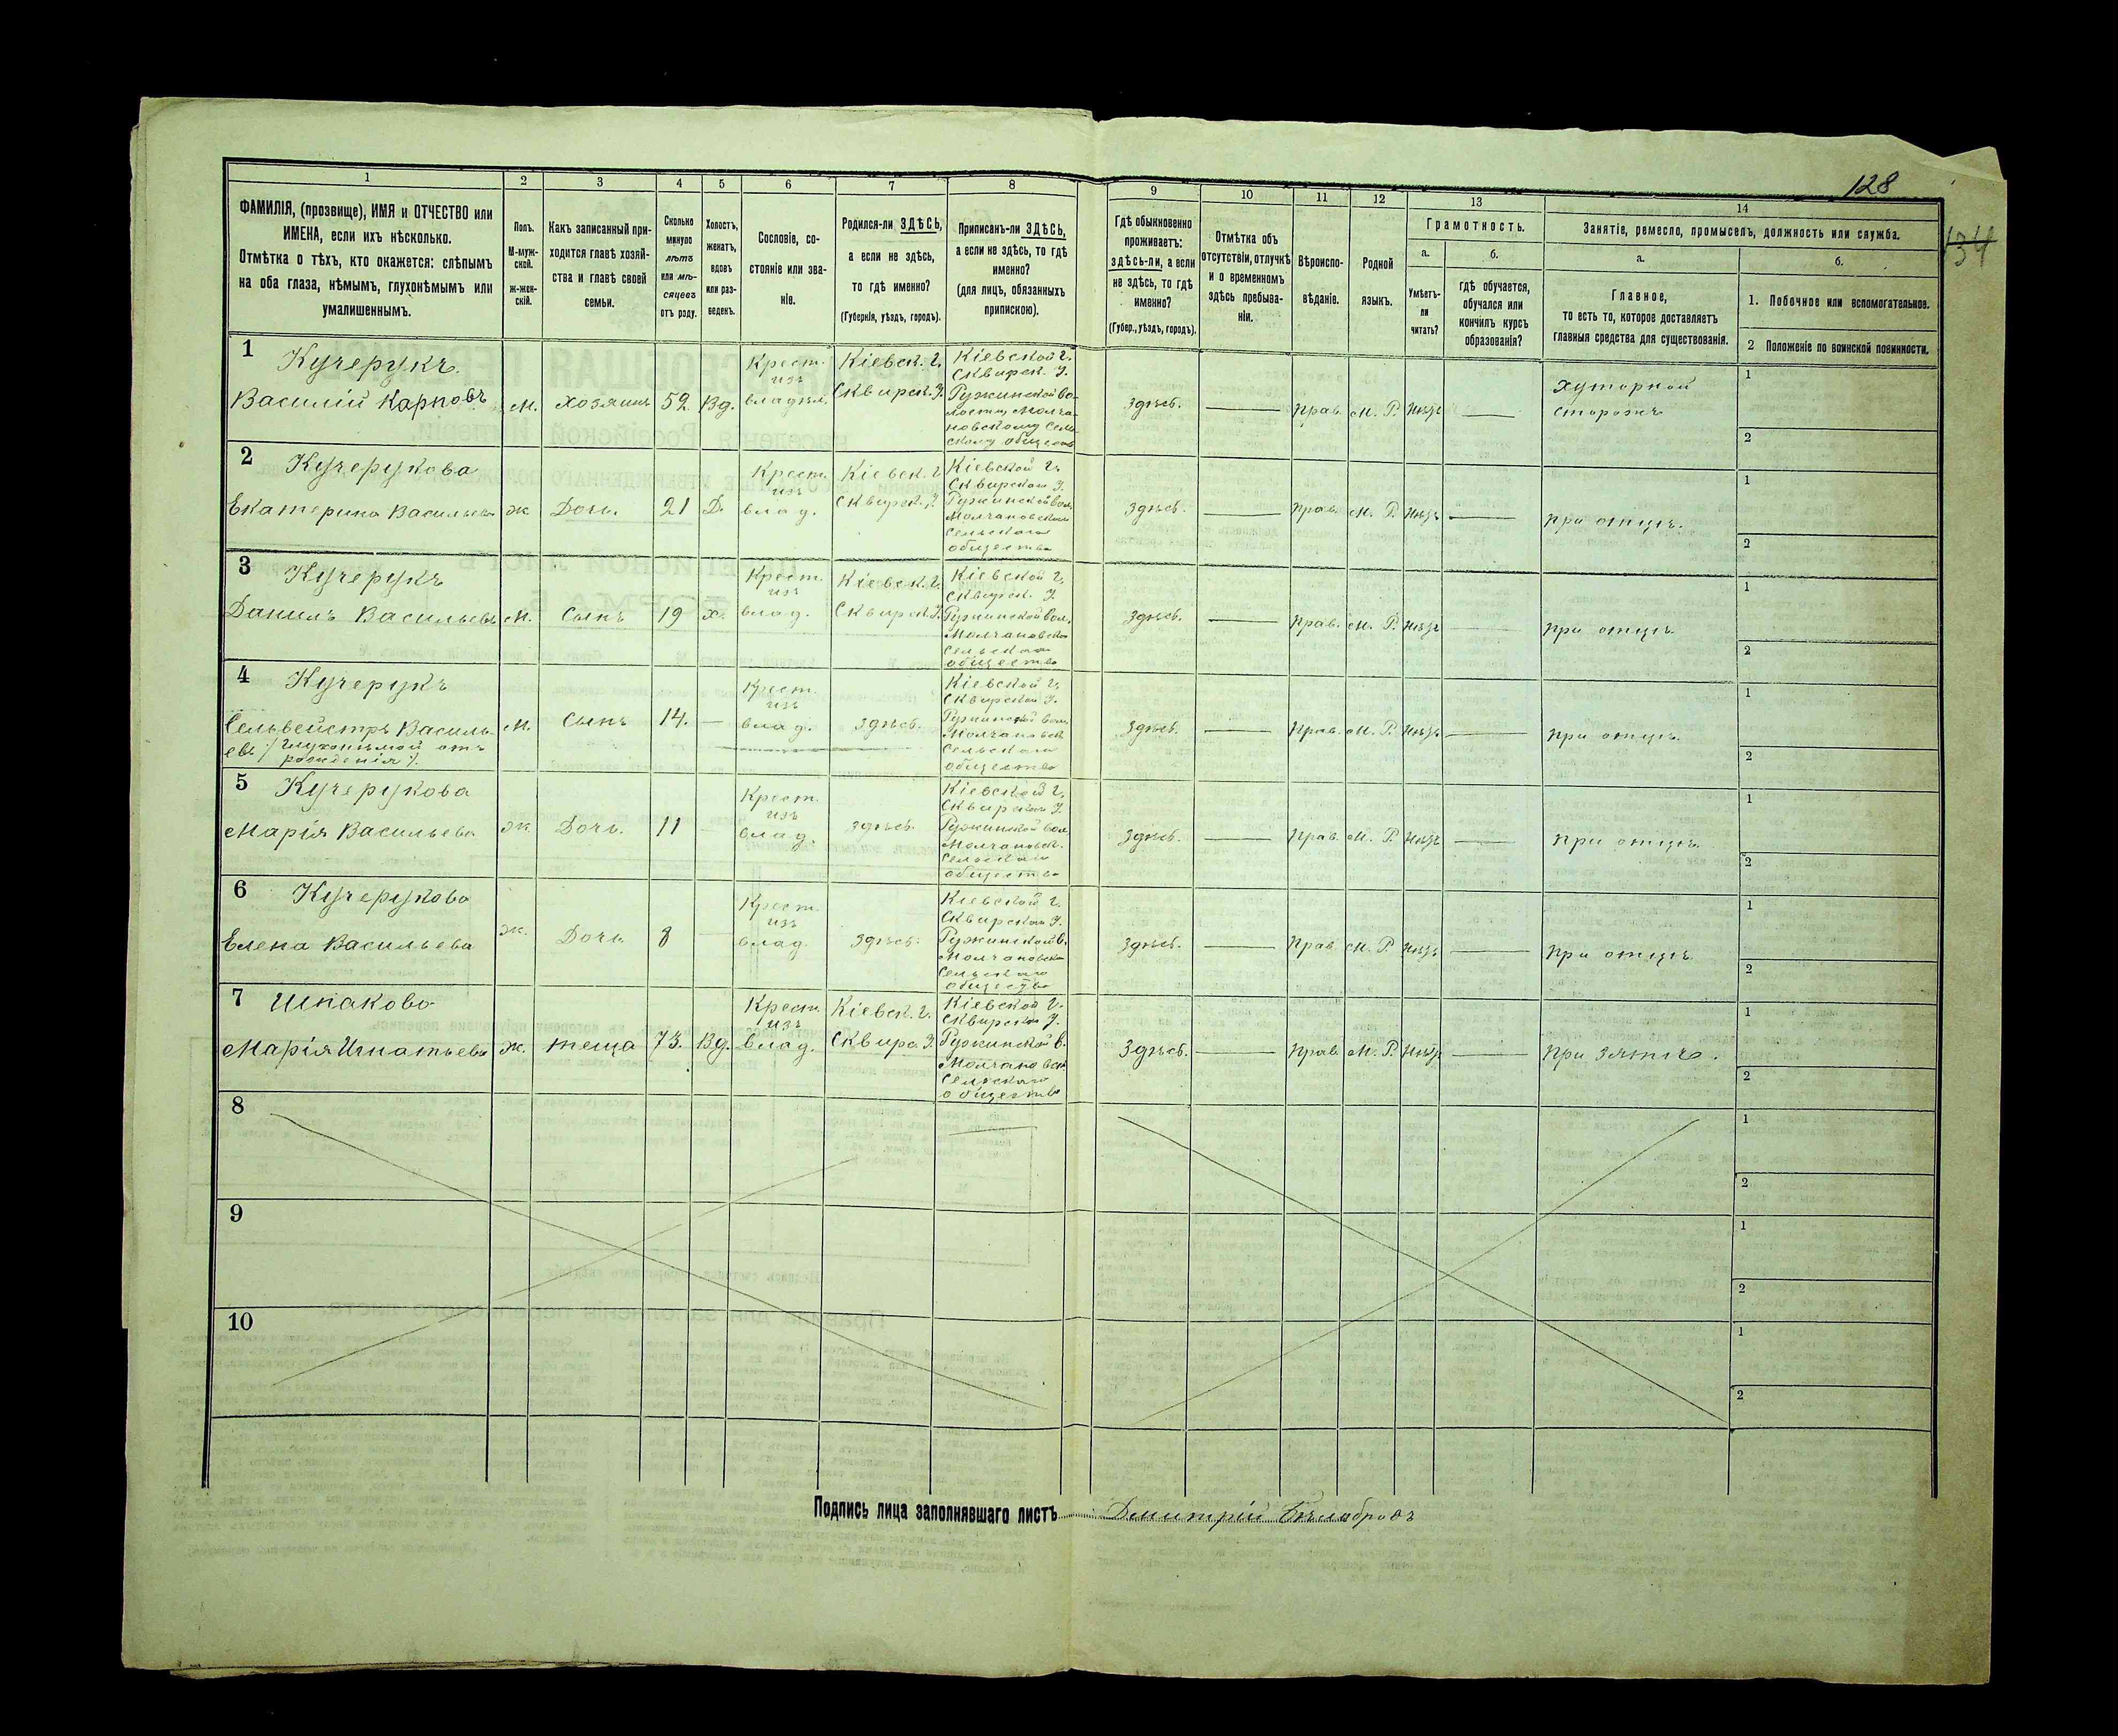 128
134
1
2
3
4
5
6
7
8
9
10
11
12
13
14
ФАМИЛІЯ, (прозвище), ИМЯ и ОТЧЕСТВО или
ИМЕНА, если ихъ нѣсколько.
Отмѣтка о тѣхъ, кто окажется: слѣпымъ
на оба глаза, нѣмымъ, глухонѣмымъ или
умалишеннымъ.
Полъ.
М-муж-
ской.
ж-жен-
скій.
Какъ записанный при-
ходится главѣ хозяй-
ства и главѣ своей
семьи.
Сколько
минуло
лѣтъ
или мѣ-
сяцевъ
отъ роду.
Холостъ,
женатъ,
вдовъ
или раз-
веденъ.
Сословіе, со-
стояніе или зва-
ніе.
Родился-ли ЗДѢСЬ,
а если не здѣсь,
то гдѣ именно?
(Губернія, уѣздъ, городъ).
Приписанъ-ли ЗДѢСЬ,
а если не здѣсь, то гдѣ
именно?
(для лицъ, обязанныхъ
припискою).
Гдѣ обыкновенно
проживаетъ:
здѣсь-ли, а если
не здѣсь, то гдѣ
именно?
(Губер., уѣздъ, городъ).
Отмѣтка объ
отсутствіи, отлучкѣ
и о временномъ
здѣсь пребыва-
ніи.
Вѣроиспо-
вѣданіе.
Родной
языкъ.
Грамотность.
а.
Умѣетъ-
ли
читать?
б.
гдѣ обучается,
обучался или
кончилъ курсъ
образованія?
Занятіе, ремесло, промыселъ, должность или служба.
а.
Главное,
то есть то, которое доставляетъ
главныя средства для существованія.
б.
1. Побочное или вспомогательное.
2 Положеніе по воинской повинности.
1 Кучерукъ.
Василій Карповъ
м. хозяинъ 52 Вд.
Крест.
изъ
владѣл.
Кіевск. г.
Сквирск. У.
Кіевской г.
Сквирск. У.
Ружинской во-
лости Молча-
новскому Сель-
скому обществ
здѣсь. прав. М. Р. нѣтъ
хуторной
сторожъ
1
2
2 Кучерукова
Екатерина Васильева
ж Дочь. 21 Д.
Крест.
изъ
влад.
Кіевск. г.
Сквирск. У.
Кіевской г.
Сквирскаго У.
Ружинской вол.
Молчановскаго
Сельскаго
общества
здѣсь. прав. М. Р. нѣтъ при отцѣ.
1
2
3 Кучерукъ
Данилъ Васильевъ
м. Сынъ 19 х.
Крест.
изъ
влад.
Кіевск. г.
Сквирск. У.
Кіевской г.
Сквирск. У.
Ружинской вол.
Молчановско
Сельскаго
общества
здѣсь. прав. М. Р. нѣтъ при отцѣ
1
2
4 Кучерукъ
Сельвейстръ Василь-
евъ /глухонѣмой отъ
рожденія/.
м. Сынъ 14.
Крест.
изъ
влад.
здѣсь.
Кіевской г.
Сквирской У.
Ружинской вол.
Молчановск
Сельскаго
общества
здѣсь. прав. М. Р. нѣтъ при отцѣ.
1
2
5 Кучерукова
Марія Васильева
ж. Дочь. 11
Крест.
изъ
влад.
здѣсь.
Кіевской г.
Сквирскаго У.
Ружинской вол
Молчановск.
Сельскаго
общества
здѣсь. прав. М. Р. нѣтъ при отцѣ.
1
2
6 Кучерукова
Елена Васильева
ж. Дочь 8
Крест.
изъ
влад.
здѣсь.
Кіевской г.
Сквирскаго У.
Ружинской в.
Молчановско
Сельскаго
общества
здѣсь. прав. М. Р. нѣтъ при отцѣ
1
2
7 Шпакова
Марія Игнатьева
ж. теща 73. Вд.
Крест.
изъ
влад.
Кіевск. г.
Сквирс. У.
Кіевской г.
Сквирскаго У.
Ружинской в.
Молчановск
Сельскаго
общества
здѣсь. прав. М. Р. нѣтъ при зятѣ.
1
2
8
1
2
9
1
2
10
1
2
Подпись лица заполнявшаго листъ Димитрій Бѣлобродъ